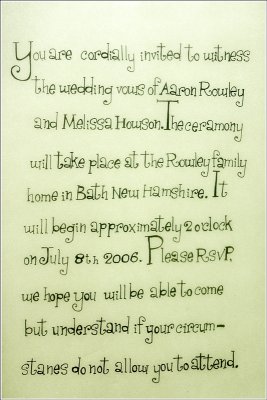 You are cordially invited to witness
the wedding vows of Aaron Rowley
and Melissa Howson. The ceramony
will take place at the Rowley family
home in Bath New Hamshire. It
will begin approximately 2 o'clock
on July 8th 2006. Please RSVP.
we hope you will be able to come
but understand if your circum-
stanes do not allow you to attend.